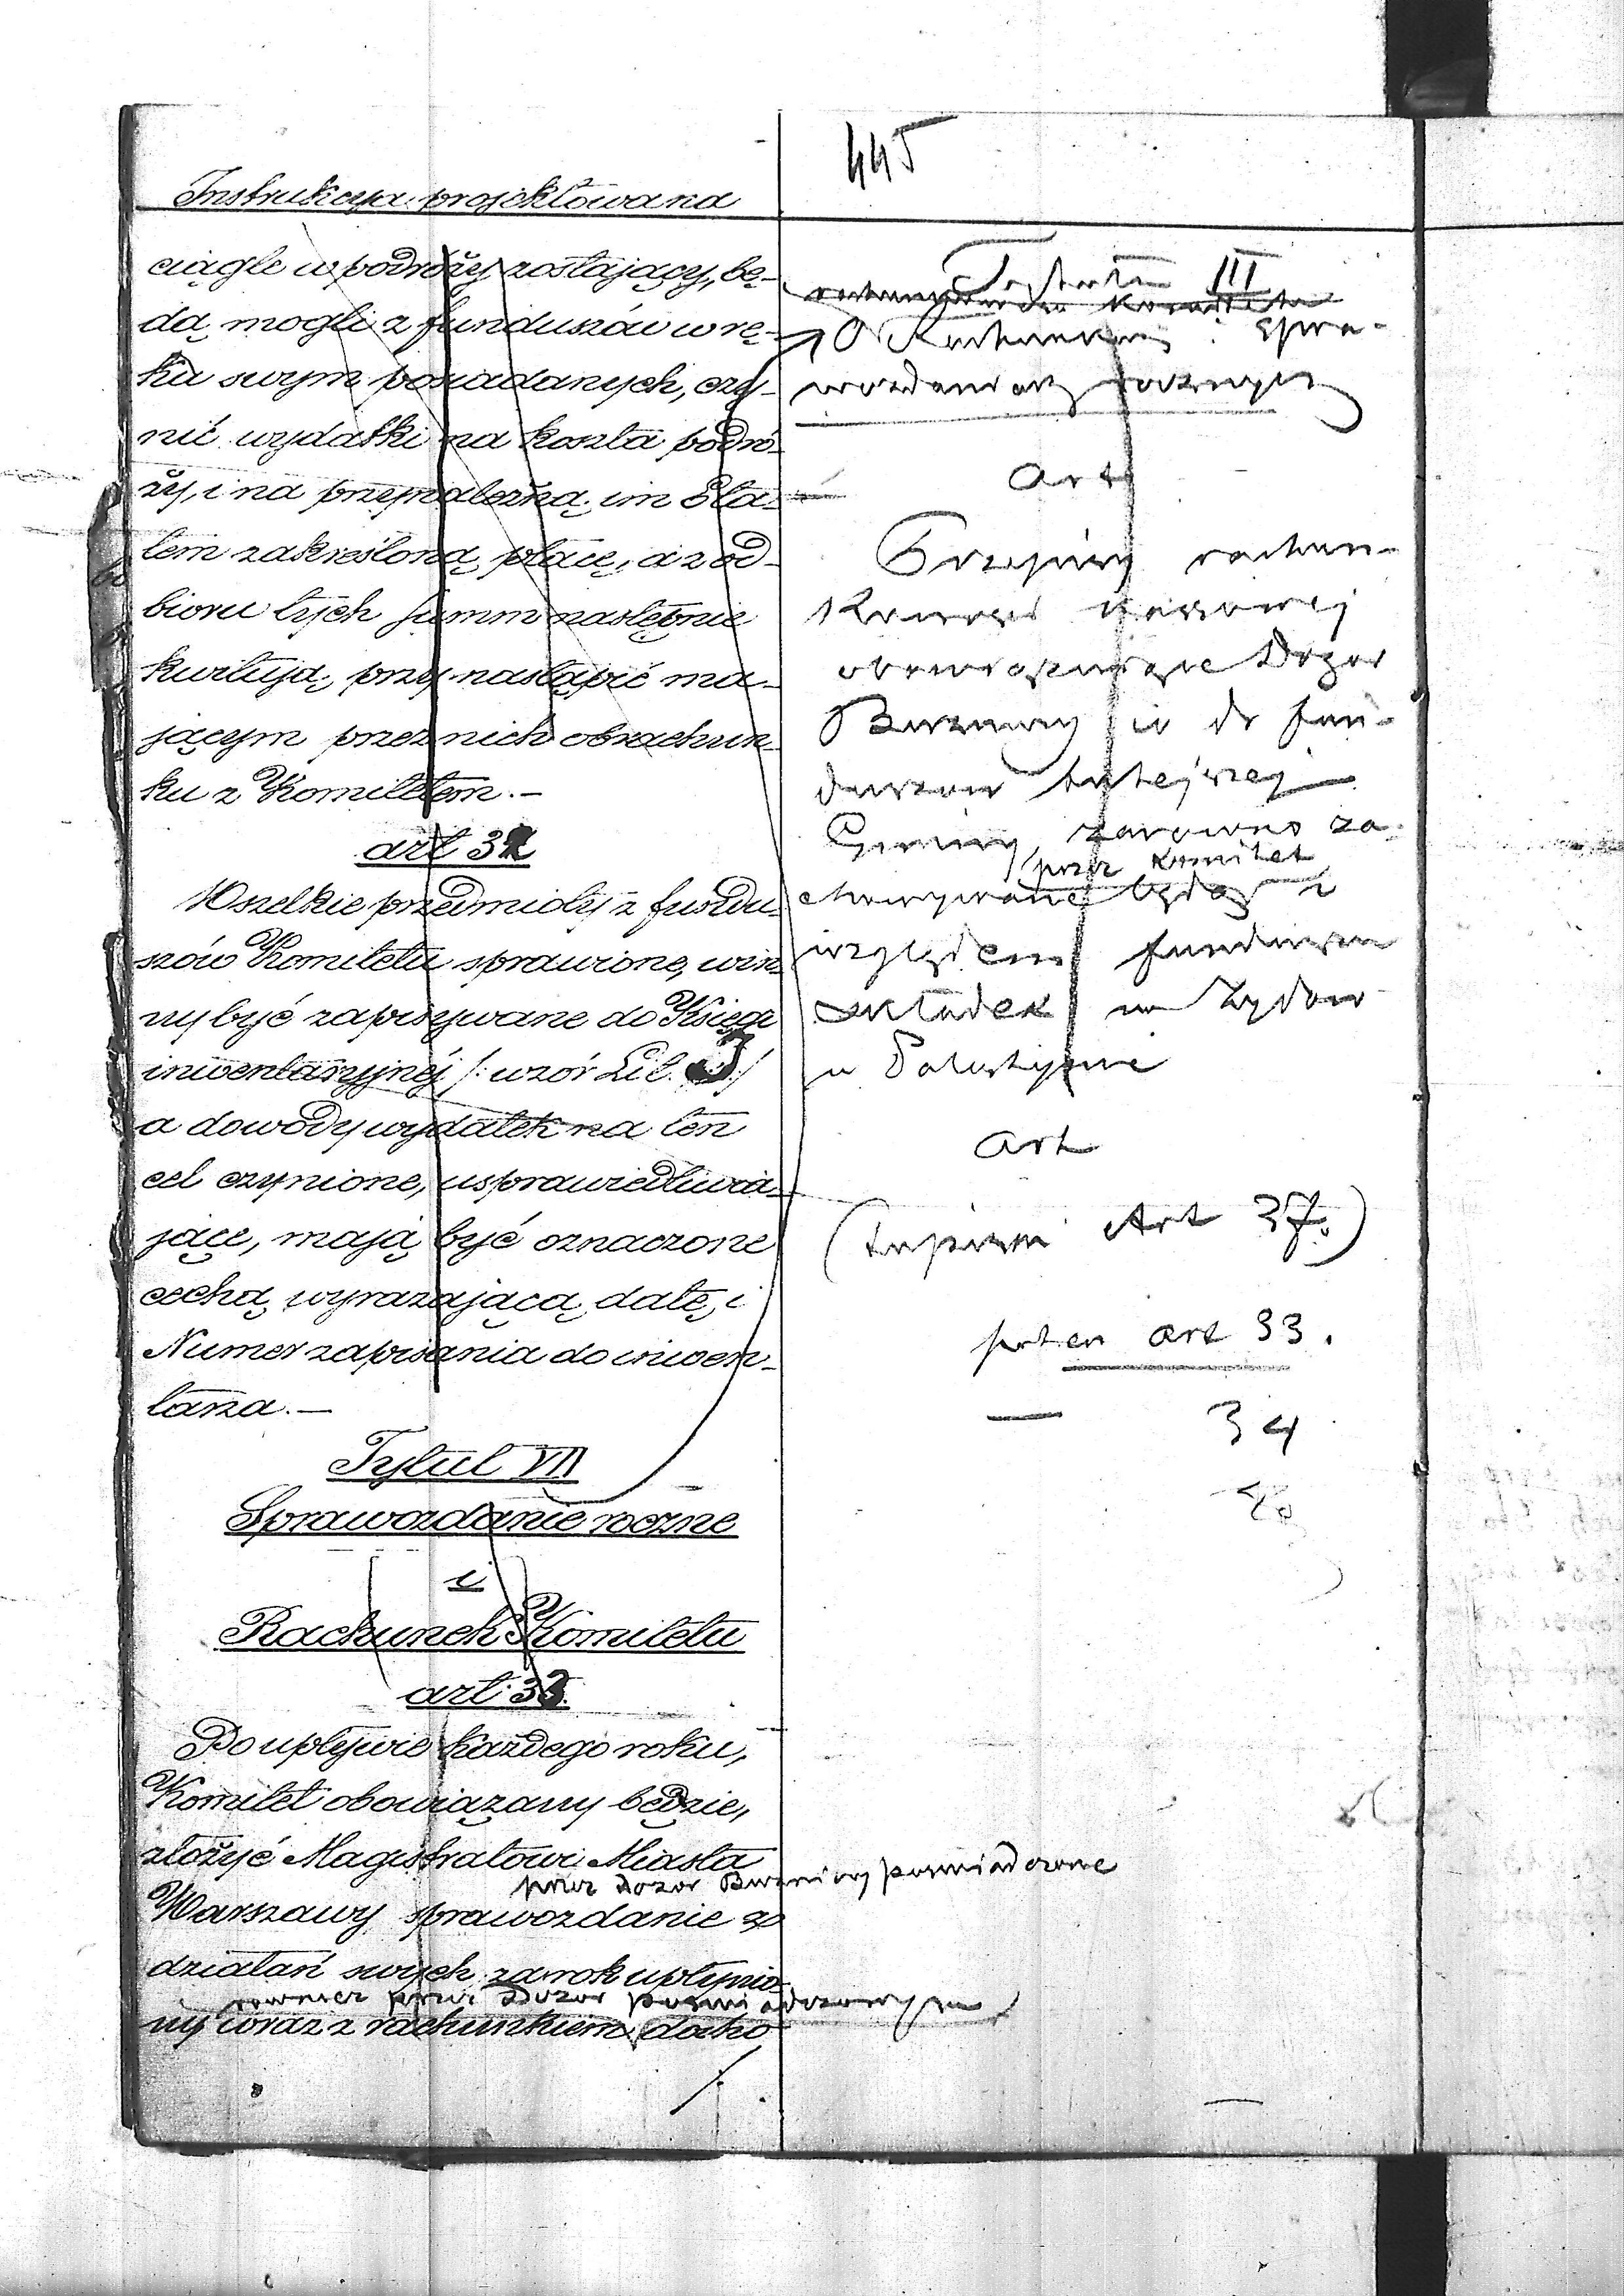 445
Instrukcya projektowana
ciągle w podróży zostający, bę-
dą mogli z funduszów w rę-
ku swym posiadanych, czy-
nić wydatki na koszta podró-
ży, i na przynależną im Eta-
tem zakreśloną płacę, a z od-
bioru tych summ następnie
kwitują, przy nastąpić ma-
jącym przez nich obrachun-
ku z Komitetem.-
art 32
Wszelkie przedmioty z fundu-
szów Komitetu sprawione, win-
ny być zapisywane do Księgi
inwentaryjnéj /: wzór Lit. J :/
a dowody wydatek na ten
cel czynione, usprawiedliwia-
jące, mają być oznaczone
cechą, wyrażającą datę, i
Numer zapisania do inwen-
tarza.-
Tytuł VII
Sprawozdanie roczne
i
Rachunek Komitetu
art: 33.
Po upływie każdego roku,
Komitet obowiązany będzie,
złożyć Magistratowi Miasta
przez Dozor Bużniczy poświadczone
Warszawy sprawozdanie z
działań swych za rok upłynio-
rownież przez Dozor poświadczonym
ny wraz z rachunkiem docho
III
O Rachunkach i spra-
wozdaniach rocznych
Art
Przepisy rachun-
kowości kassowej
obowiązujące Dozor
Bużniczy co do fun-
duszów tutejszej
Gminy, zarowno za-
przez Komitet
chowywane będą i
względem funduszu
składek na Żydow
w Palestynie
Art
Art 37.)
potem art 33.
— 34